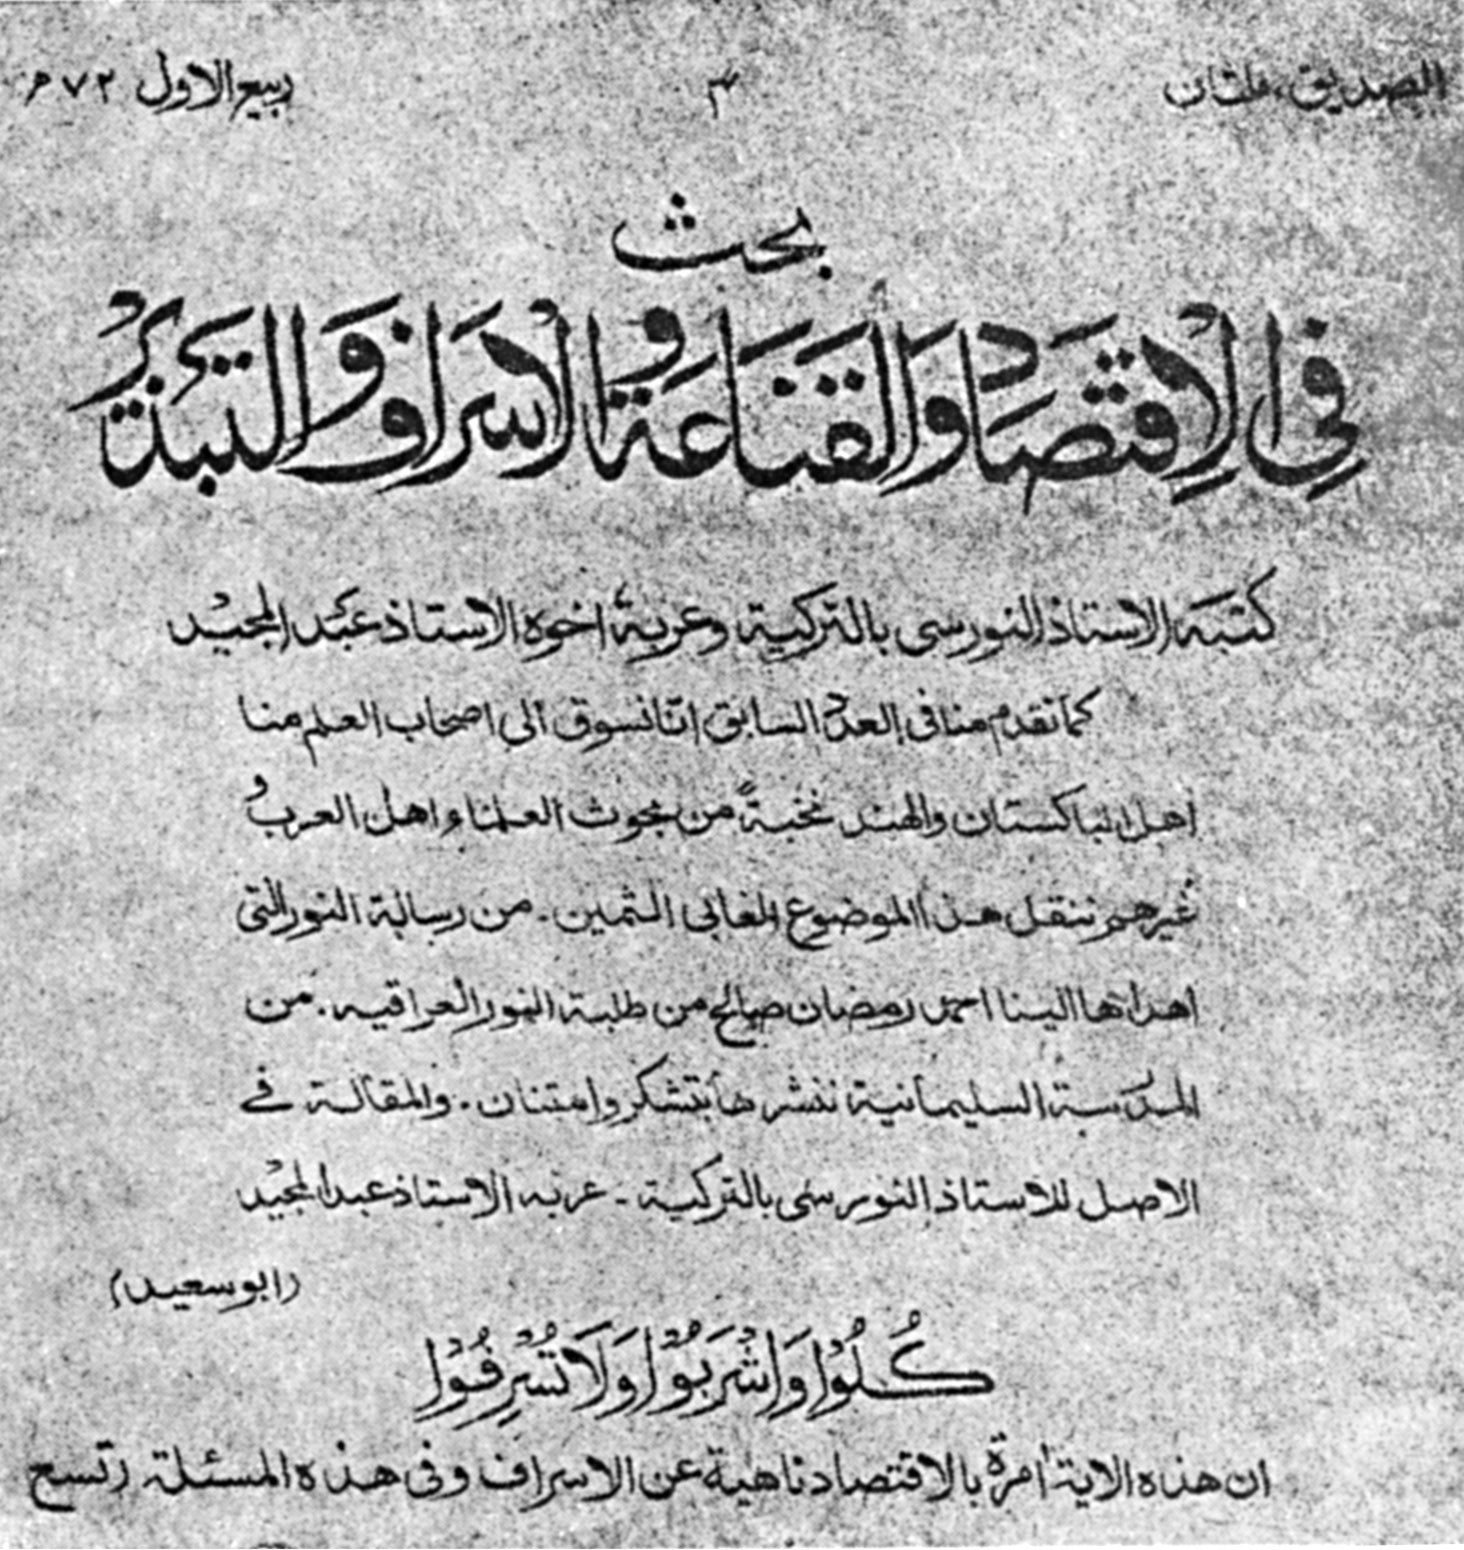 الصديق، ملتان
٣
ربيع الاول ٧٢ھ
بحث
فِى الْاِقتصَاد وَالقَنَاعَة وَالْاسرَاف وَالتبذيْر
كتبَه الاستاذ النورسى بالتركية وعربهٗ اخوه الاستاذ عبَد المجيْد
كما تقدم منا فى العدد السابق اننا نسوق الى اصحاب العلم منا
اهل الباكستان والهند نخبةً من بحوث العلماء اهل العرب و
غيرهم ننقل هذا الموضوع الغالى الثمين. من رسالة النور التى
اهداها الينا احمد رمضان صالح من طلبة النور العراقيه. من
المدرسة السليمانية ننشرها بتشكر وامتنان. والمقالة فى
الاصل للاستاذ النورسى بالتركية - عربه الاستاذ عبد المجيْد
(ابو سعيد)
كُلُوْا وَاشْرَبُوْا وَلَا تُسْرِفُوْا
ان هذه الاية اٰمرة بالاقتصاد ناهية عن الاسراف وفى هذه المسئلة تسع